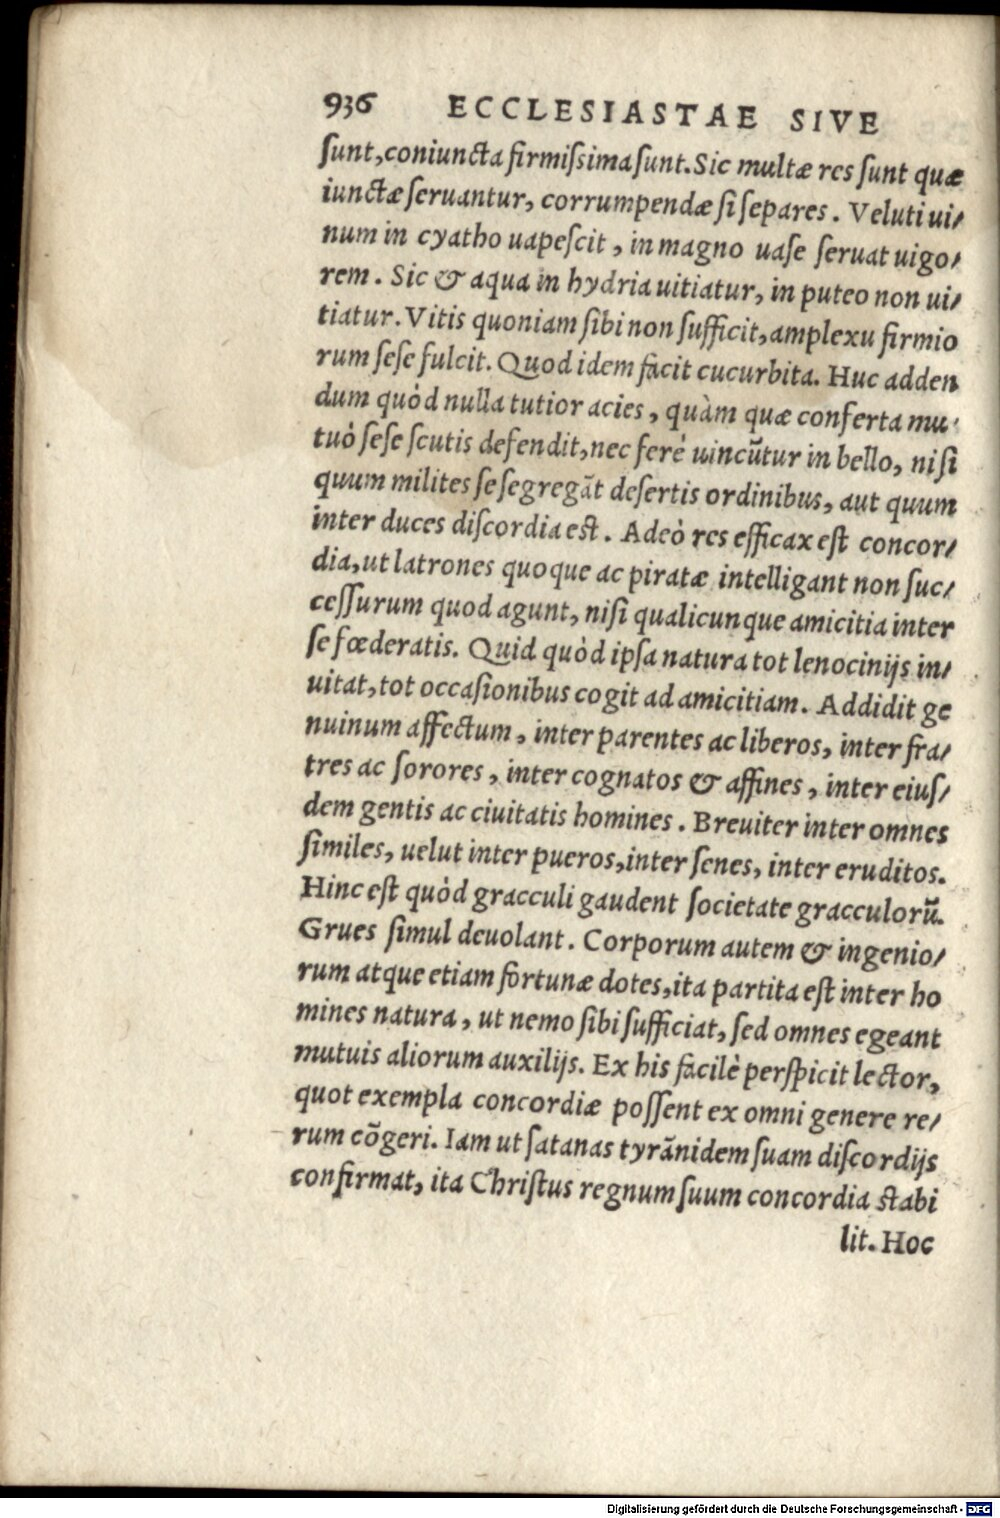 936 ECCLESIASTAE SIVE
ſunt, coniuncta firmiſsima ſunt. Sic multæ res ſunt quæ
iunctæ ſeruantur, corrumpendæ ſi ſepares. Veluti ui/
num in cyatho uapeſcit, in magno uaſe ſeruat uigo/
rem. Sic & aqua in hydria uitiatur, in puteo non ui/
tiatur. Vitis quoniam ſibi non ſufficit, amplexu firmio
rum ſeſe fulcit. Quod idem facit cucurbita. Huc adden
dum quòd nulla tutior acies, quàm quæ conferta mu/
tuò ſeſe ſcutis defendit, nec ferè uincũtur in bello, niſi
quum milites ſe ſegregãt deſertis ordinibus, aut quum
inter duces diſcordia eſt. Adeò res efficax eſt concor/
dia, ut latrones quoque ac piratæ intelligant non ſuc/
ceſſurum quod agunt, niſi qualicunque amicitia inter
ſe fœderatis. Quid quòd ipſa natura tot lenocinijs in/
uitat, tot occaſionibus cogit ad amicitiam. Addidit ge
nuinum affectum, inter parentes ac liberos, inter fra/
tres ac ſorores, inter cognatos & affines, inter eiuſ/
dem gentis ac ciuitatis homines. Breuiter inter omnes
ſimiles, uelut inter pueros, inter ſenes, inter eruditos.
Hinc eſt quòd gracculi gaudent ſocietate gracculorũ.
Grues ſimul deuolant. Corporum autem & ingenio/
rum atque etiam fortunæ dotes, ita partita eſt inter ho
mines natura, ut nemo ſibi ſufficiat, ſed omnes egeant
mutuis aliorum auxilijs. Ex his facilè perſpicit lector,
quot exempla concordiæ poſſent ex omni genere re/
rum cõgeri. Iam ut ſatanas tyrãnidem ſuam diſcordijs
confirmat, ita Chriſtus regnum ſuum concordia ſtabi
lit. Hoc
Digitalisierung gefördert durch die Deutsche Forschungsgemeinschaft - DFG